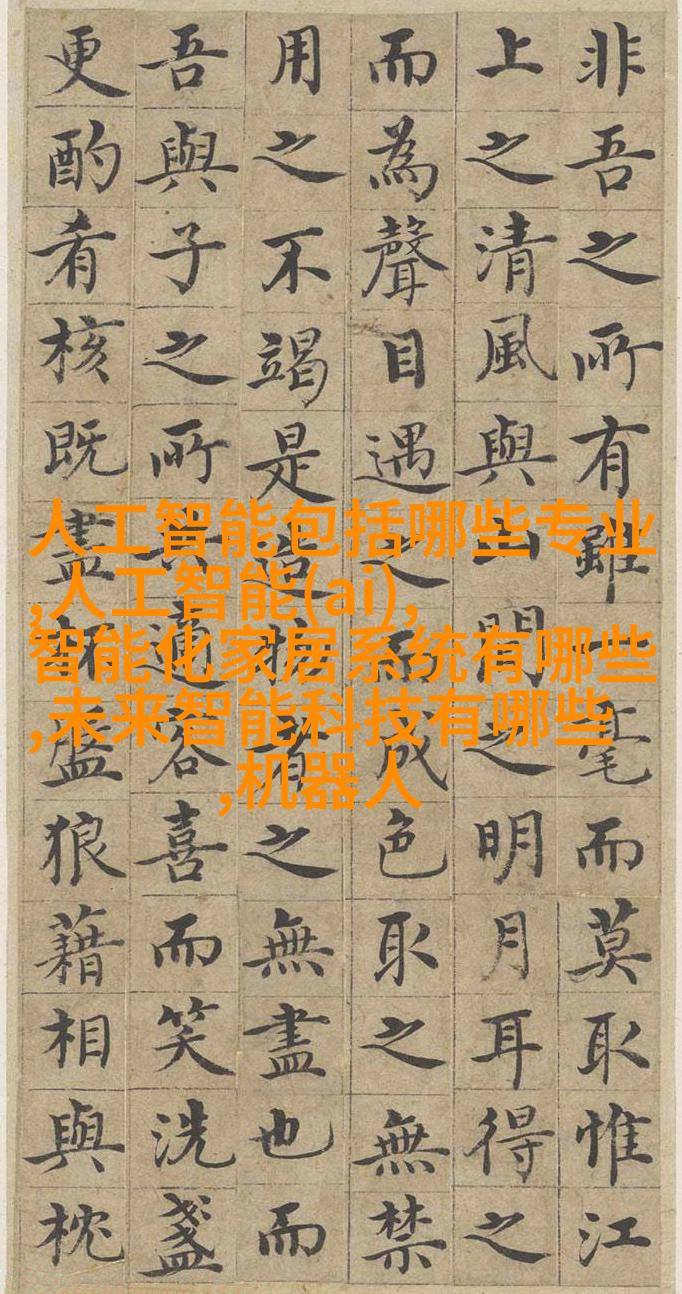 非吾之所有雖一毫而莫取惟江
上之清風與山間之明月耳得之
而為聲目遇之而成色取之無禁
用之不竭是造物者之無盡也而
吾與子之所共適客喜而笑洗盞
更酌肴核既盡杯盤狼藉相與枕
人工智能包括哪些专业
,人工智能(ai),
智能化家居系统有哪些
,未来智能科技有哪些
,机器人